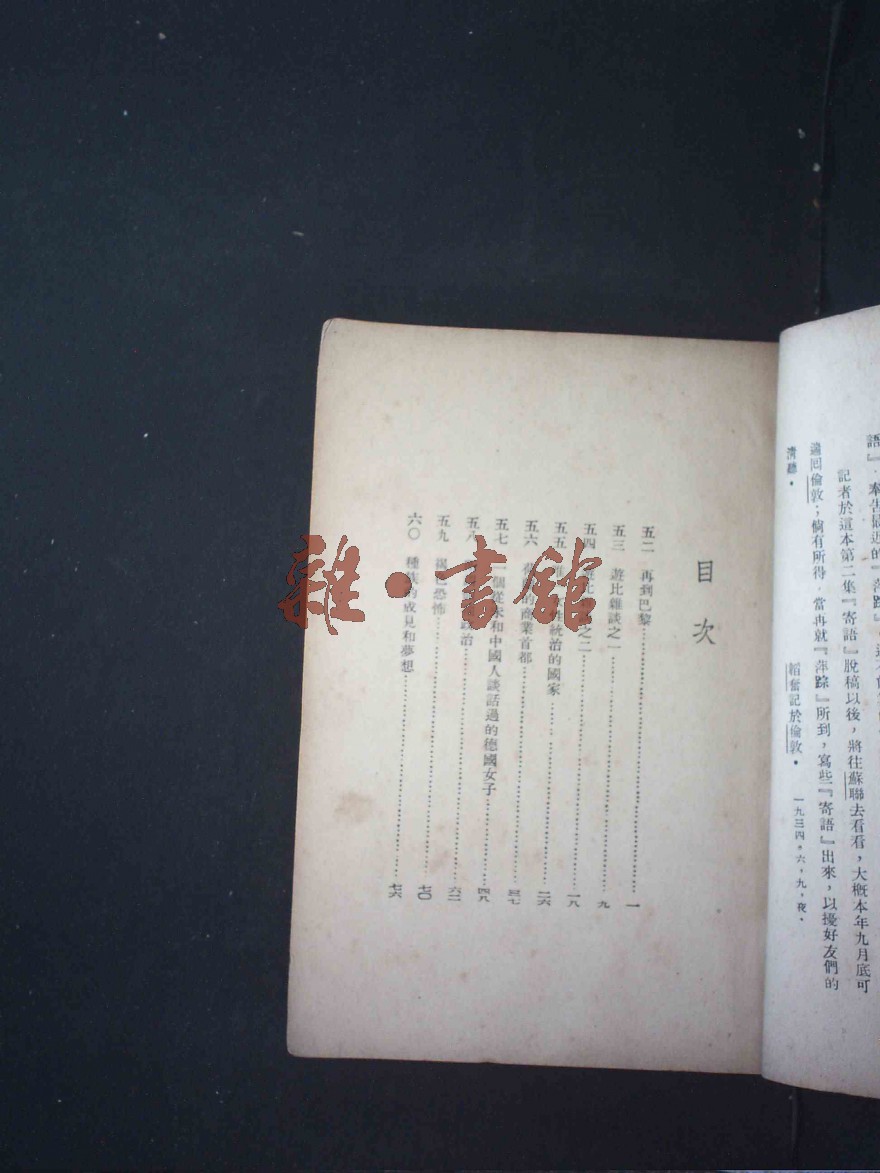 語』，奉告
記者於這本第二集『寄語』脫稿以後，將往蘇聯去看看，大概本年九月底可
遶回倫敦；倘有所得，當再就『萍踪』所到，寫些『寄語』出來，以擾好友們的
清聽。
韜奮記於倫敦。 一九三四，六，九，夜。
目次
五二 再到巴黎 一
五三 遊比雜談之一 九
五四 遊比 之二 一八
五五 統治的國家 二六
五六 的商業首都 三七
五七 一個從未和中國人談話過的德國女子 四九
五八 政治 六二
五九 褐色恐怖 七〇
六〇 種族的成見和夢想 七六
雜·書館